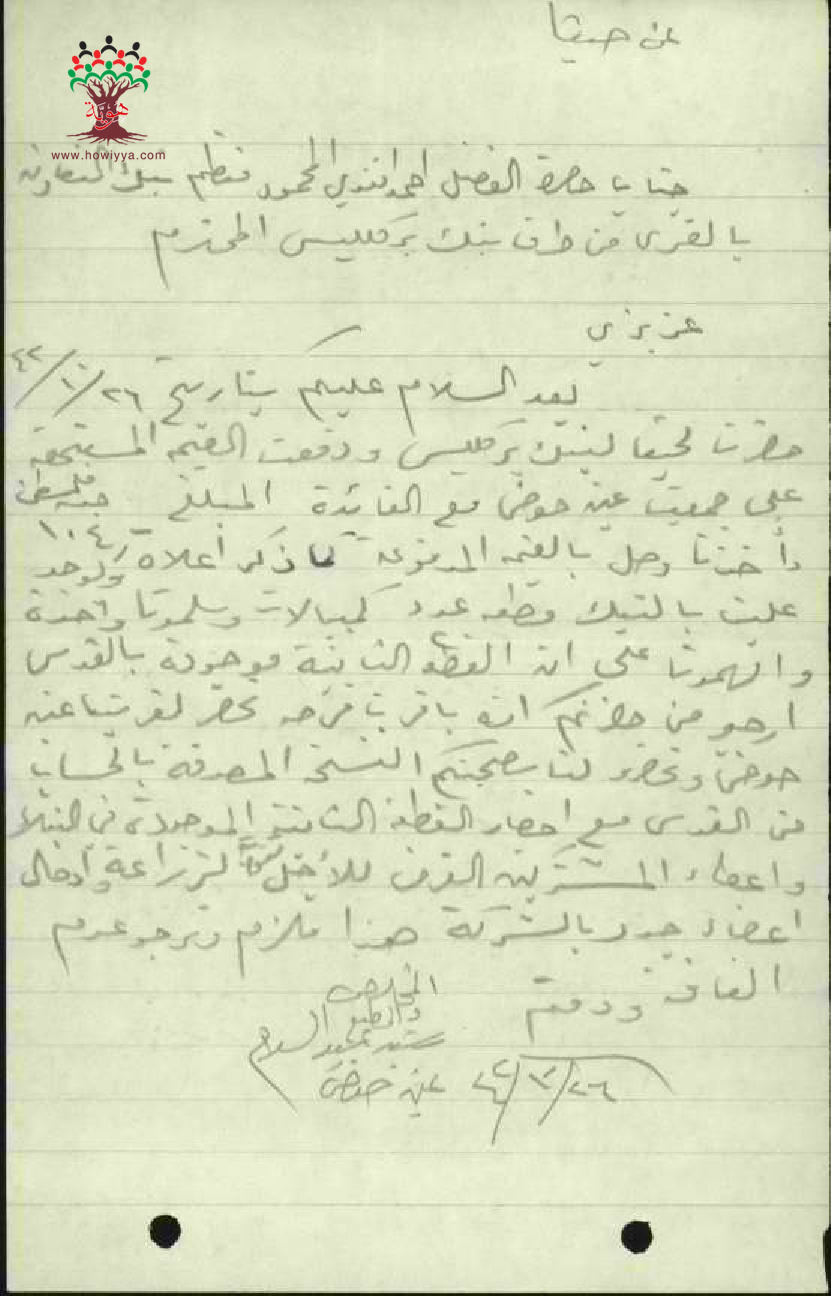 عن حيفا
هوية
www.howiyya.com
جناب حضرة الفضل احمد افندي المحمود منظم بنك التعاون
بالقرى من طرف بنك بركليس المحترم
عزيزي
بعد السلام عليكم بتاريخ ٢٦/١٠/٤٢
حضرنا لحيفا لبنك بركليس ودفعت القيمه المستحقه
على جمعيت عين حوض مع الفائدة المبلغ ١٠٤ جنيه فلسطيني
وأخذنا وصل بالقيمه المدفوعه كما ذكر أعلاه ويوجد
علينا بالبنك قطعه عدد كمبيالات وسلمونا واحدة
وافهمونا على ان القطعه الثانية موجودة بالقدس
ارجو من حضرتكم انه باقرب فرصه تحضر لقريتنا عين
حوض وتحضر لنا بصحبتكم النسخه المصدقه بالحساب
من القدس مع احضار القطعه الثانية الموجودة في البنك
واعطاء المشتركين القرض للأجل الزراعة وادخال
اعضاء جدد بالشركة هذا ملزم ونرجو عدم
ودمتم
المخلص
عبد السلام
عين حوض
٢٦/١٢/٤٢